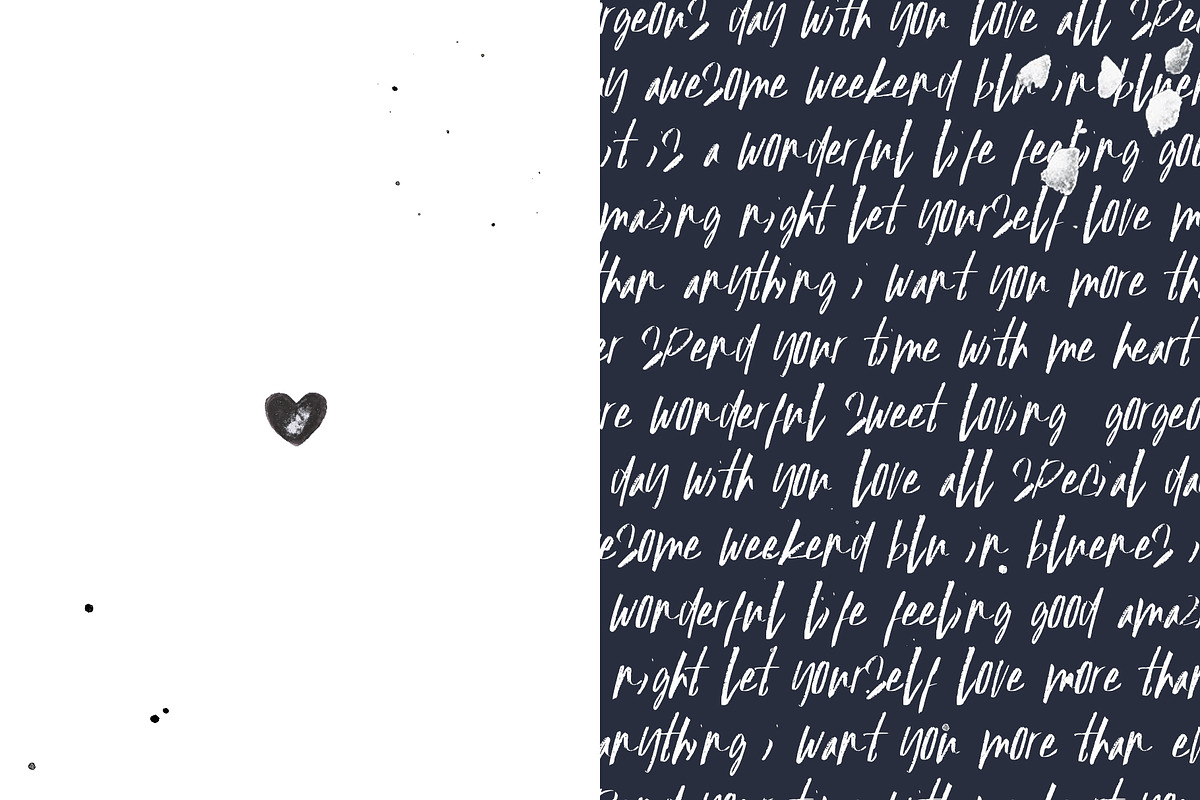 rgeous day with you love all spe
y awesome weekend blu in bluen
it is a wonderful life feeling goo
mazing night let yourself love m
than anything i want you more th
er spend your time with me heart
re wonderful sweet loving gorgeo
day with you love all special da
esome weekend blu in bluenes i
wonderful life feeling good amaz
night let yourself love more than
anything i want you more than e